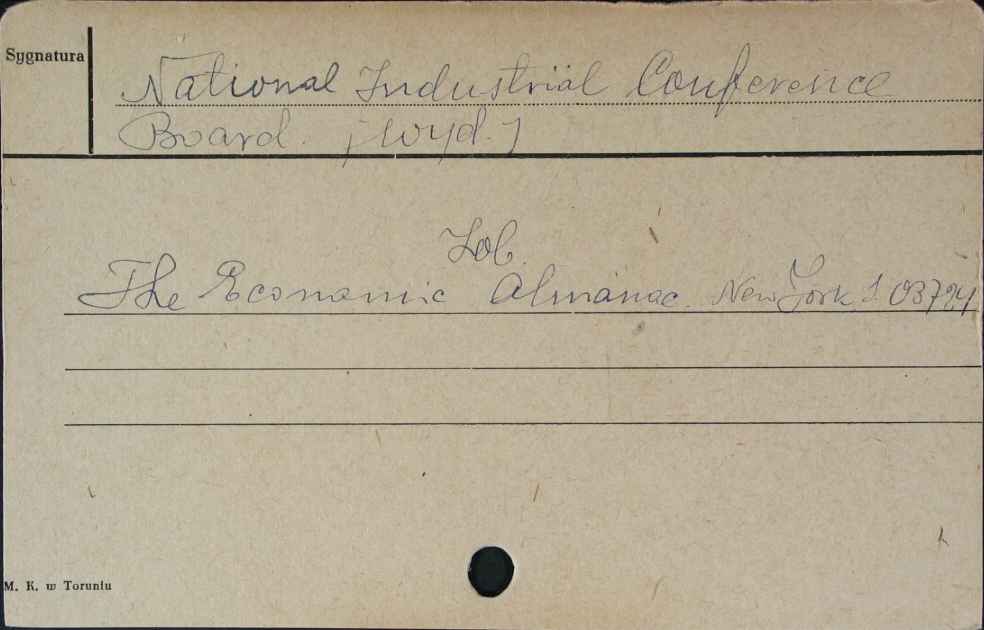 Sygnatura
National Industrial Conference
Board. [wyd.]
Zob.
The Economic Almanac. New York. S. 03724
M. K. w Toruniu